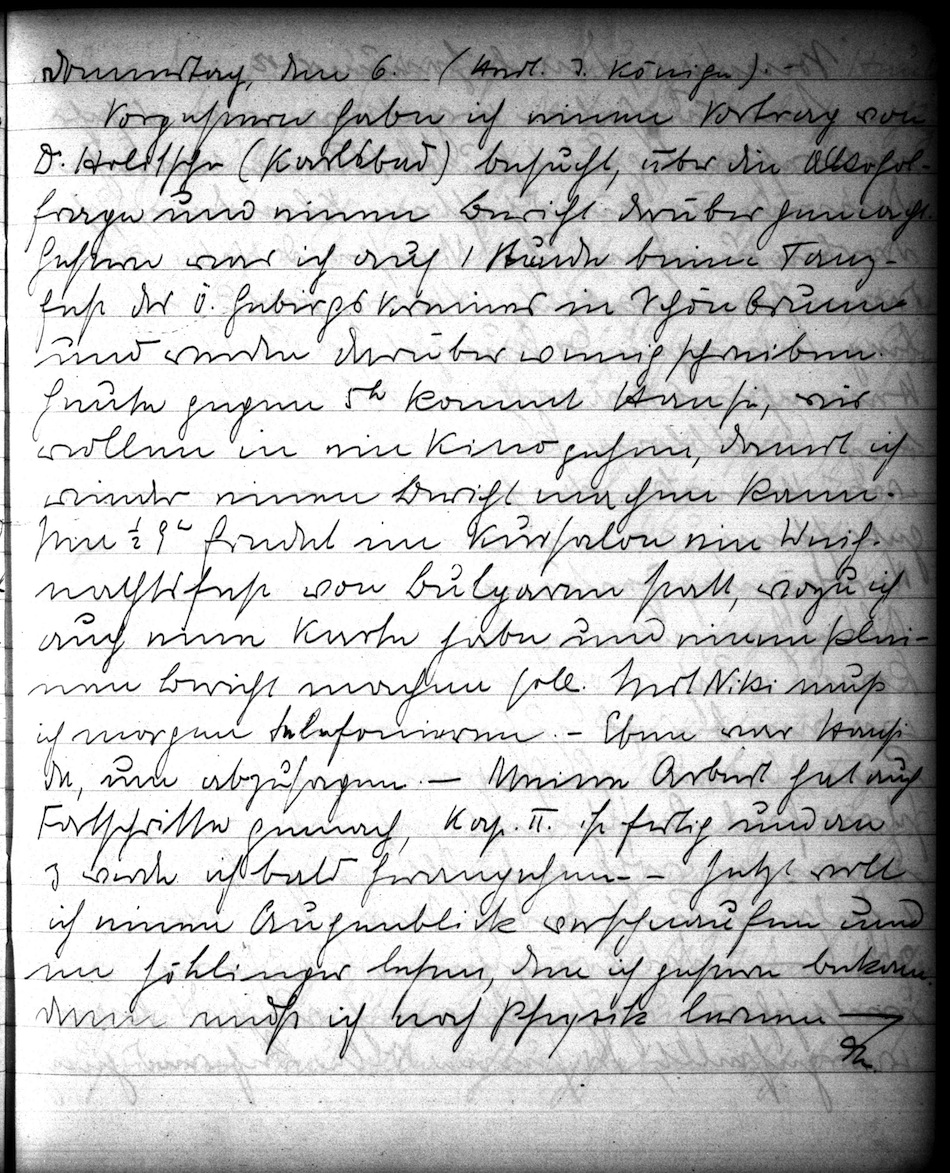 Donnerstag, den 6. (Andt. 3. Könige). -
Vorgestern habe ich einen Vortrag von
Dr. Holitscher (Karlsbad) besucht, über die Alkohol-
frage und einen Bericht darüber gemacht.
Gestern war ich auf 1 Stunde beim Tanz-
fest des Ö. Gebirgsvereines in Schönbrunn
und werde darüber wenig schreiben.
Heute gegen 5h kommt Hansi, wir
wollen in ein Kino gehen, damit ich
wieder einen Bericht machen kann.
Um ½ 9h findet im Kursalon ein Weih-
nachtsfest von Bulgaren statt, wozu ich
auch eine Karte habe und einen klei-
nen Bericht machen soll. Mit Niki muß
ich morgen telefonieren. - Eben war Hansi
da, um abzusagen. — Meine Arbeit hat auch
Fortschritte gemach, Kap. II. ist fertig und an
3 werde ich bald herangehen. - - Jetzt will
ich einen Augenblick verschnaufen und
im Höhlinger lesen, den ich gestern bekam.
dann muß ich noch Physik lernen —